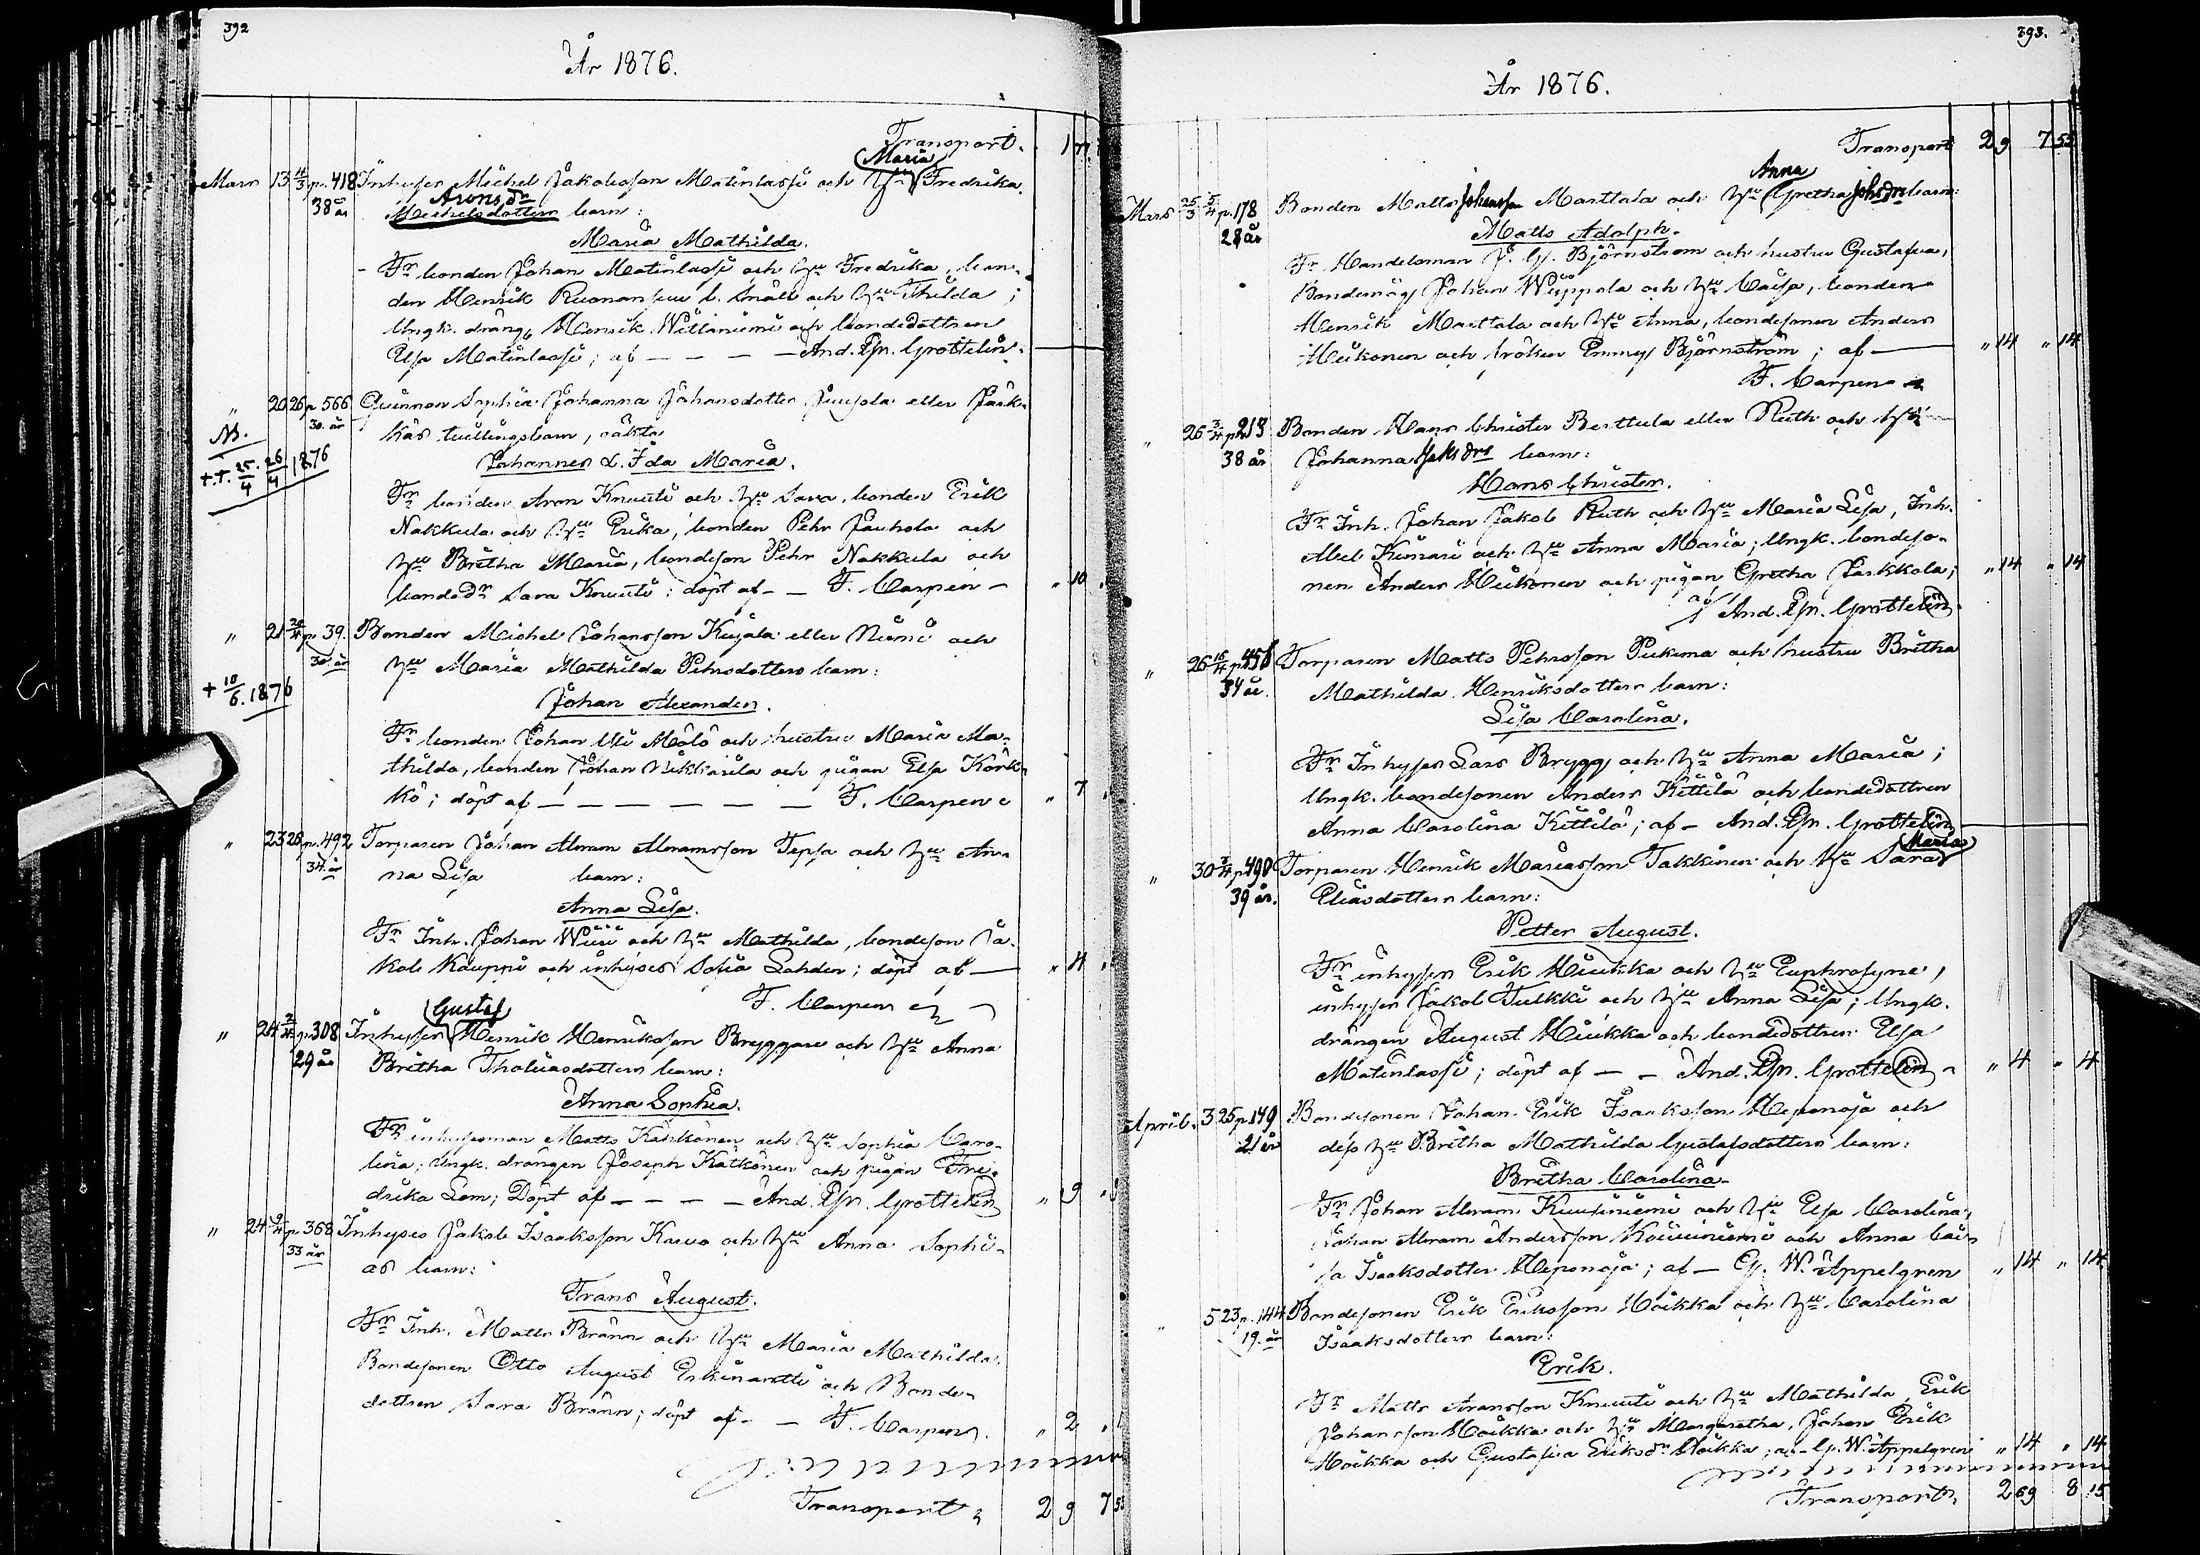 392
År 1876.
Transport.
Maria
Mars 13 4/3 p. 418 Inhyses Michel Jakobsson Matinlassi och Hu Fredrika
38 år
Aronsdr
Michelsdotters barn:
Maria Mathilda.
Fr bonden Johan Matinlassi och Hu Fredrika, bon-
den Henrik och Hu Thilda;
Ungk. dräng Henrik Wittaniemi och bondedottren
Elsa Matinlassi; af — — — — And. Grottelin.
" 20 26 p 566 Qvinnan Sophia Johanna Johansdotter Juujola eller
30. år
kas tvillingsbarn, oäkta
NB.
Johannes o. Ida Maria.
+.+. 25/4. 26/4 1876
Fr bonden Aron Knuuti och Hu Sara, bonden Erik
Nakkula och Hu Erika, bonden Pehr och
Hu Britha Maria, bondeson Pehr Nakkula och
bondedr Sara Knuuti: döpt af — — F. Carpen — " 10
" 21 p. 39. Bonden Michel Johansson Kujala eller Niemi och
30. år
Hu Maria Mathilda Pehrsdotters barn:
+ 10/6. 1876
Johan Alexander.
Fr bonden Johan och hustru Maria Ma-
thilda, bonden Johan och pigan Elsa Kork-
ko; döpt af — — — — — — F. Carpen " 7
" 23 28 p. 492 Torparen Johan Abram Abramsson Tepsa och Hu An-
34. år
na Lisa barn:
Anna Lisa.
Fr Inh. Johan Wiiri och Hu Mathilda, bondeson Ja-
kob Kauppi och inhyses Sofia Lahden; döpt af — " 4
F. Carpen
Gustaf
" 24 2/4 p. 308 Inhyses Henrik Henriksson Bryggare och Hu Anna
29 år
Britha Thobiasdotters barn:
Anna Sophia.
Fr inhysesman Matts Kähkönen och Hu Sophia Caro-
lina; Ungk. drängen Joseph Kätkönen och pigan Fre-
drika Lom; Döpt af — — — — And. Grottelin " 9
" 24 p. 368 Inhyses Jakob Isaksson Karvo och Hu Anna Sophi-
33 år
as barn:
Frans August.
Fr Inh. Matts Bränn och Hu Maria Mathilda.
Bondesonen Otto August Eskinantti och Bonde-
dottren Sara Bränn; döpt af — — F. Carpen. " 2
Transport 2 9 7 55
393.
År 1876.
Transport 2 9 7 55
Anna
Mars 25/3 5/4 p. 178 Bonden Matts Johansson Marttala och Hu Gretha Johsdrs barn:
28 år
Matts Adolph.
Fr Handelsman J. Gj. Björnstrom och hustru Gustafva,
Bondemåg Johan och Hu Caisa, bonden
Henrik Marttala och Hu Anna, bondesonen Anders
Heikonen och fröken Emmy Björnström; af — " 14 " 14
F. Carpen
" 26 3/4 p. 213 Bonden Hans Christer Berttula eller Ruth och Hu
38 år
Johanna Jaksdrs barn:
Hans Christer.
Fr Inh. Johan Jakob Ruth och Hu Maria Lisa, Inh.
Abel Kinnari och Hu Anna Maria; Ungk. bondeso-
nen Anders Heikonen och pigan Gretha Parkkola; " 14 " 14
af And. Grottelin.
" 26 p. 458 Torparen Matts Pehrsson Piekuma och hustru Britha
34 år.
Mathilda Henriksdotters barn:
Lisa Carolina.
Fr Inhyses Lars Brygg och Hu Anna Maria;
Ungk. bondesonen Anders Kittilä och bondedottren
Anna Carolina Kittilä; af — And. Grottelin
Maria
" 30 p. 490 Torparen Henrik Mariasson Takkinen och Hu Sara
39 år.
Eliasdotters barn:
Petter August.
Fr inhyses Erik Hiukka och Hu Euphrosyne,
inhyses Jakob Tulkki och Hu Anna Lisa; Ungk.
drängen August Hiukka och bondedottren Elsa
Matinlassi; döpt af — — And. Grottelin " 4 " 4
April. 3 25 p. 149 Bondesonen Johan Erik Isaksson Heponoja och
21 år
dess Hu Britha Mathilda Gustafsdotters barn:
Britha Carolina.
Fr Johan Abram Kuusiniemi och Hu Elsa Carolina,
Johan Abram Andersson Koivuniemi och Anna Cai-
sa Isaksdotter Heponoja; af — G. W. Appelgren " 14 " 14
" 5 23 p. 144 Bondesonen Erik Eriksson Hoikka och Hu Carolina
19. år
Isaaksdotters barn:
Erik.
Fr Matts Aronsson Knuuti och Hu Mathilda, Erik
Johansson Hoikka och Hu Margaretha, Johan Erik
Hoikka och Gustafva Eriksdr Hoikka; af — G. W. Appelgren " 14 " 14
Transport 2 69 8 15